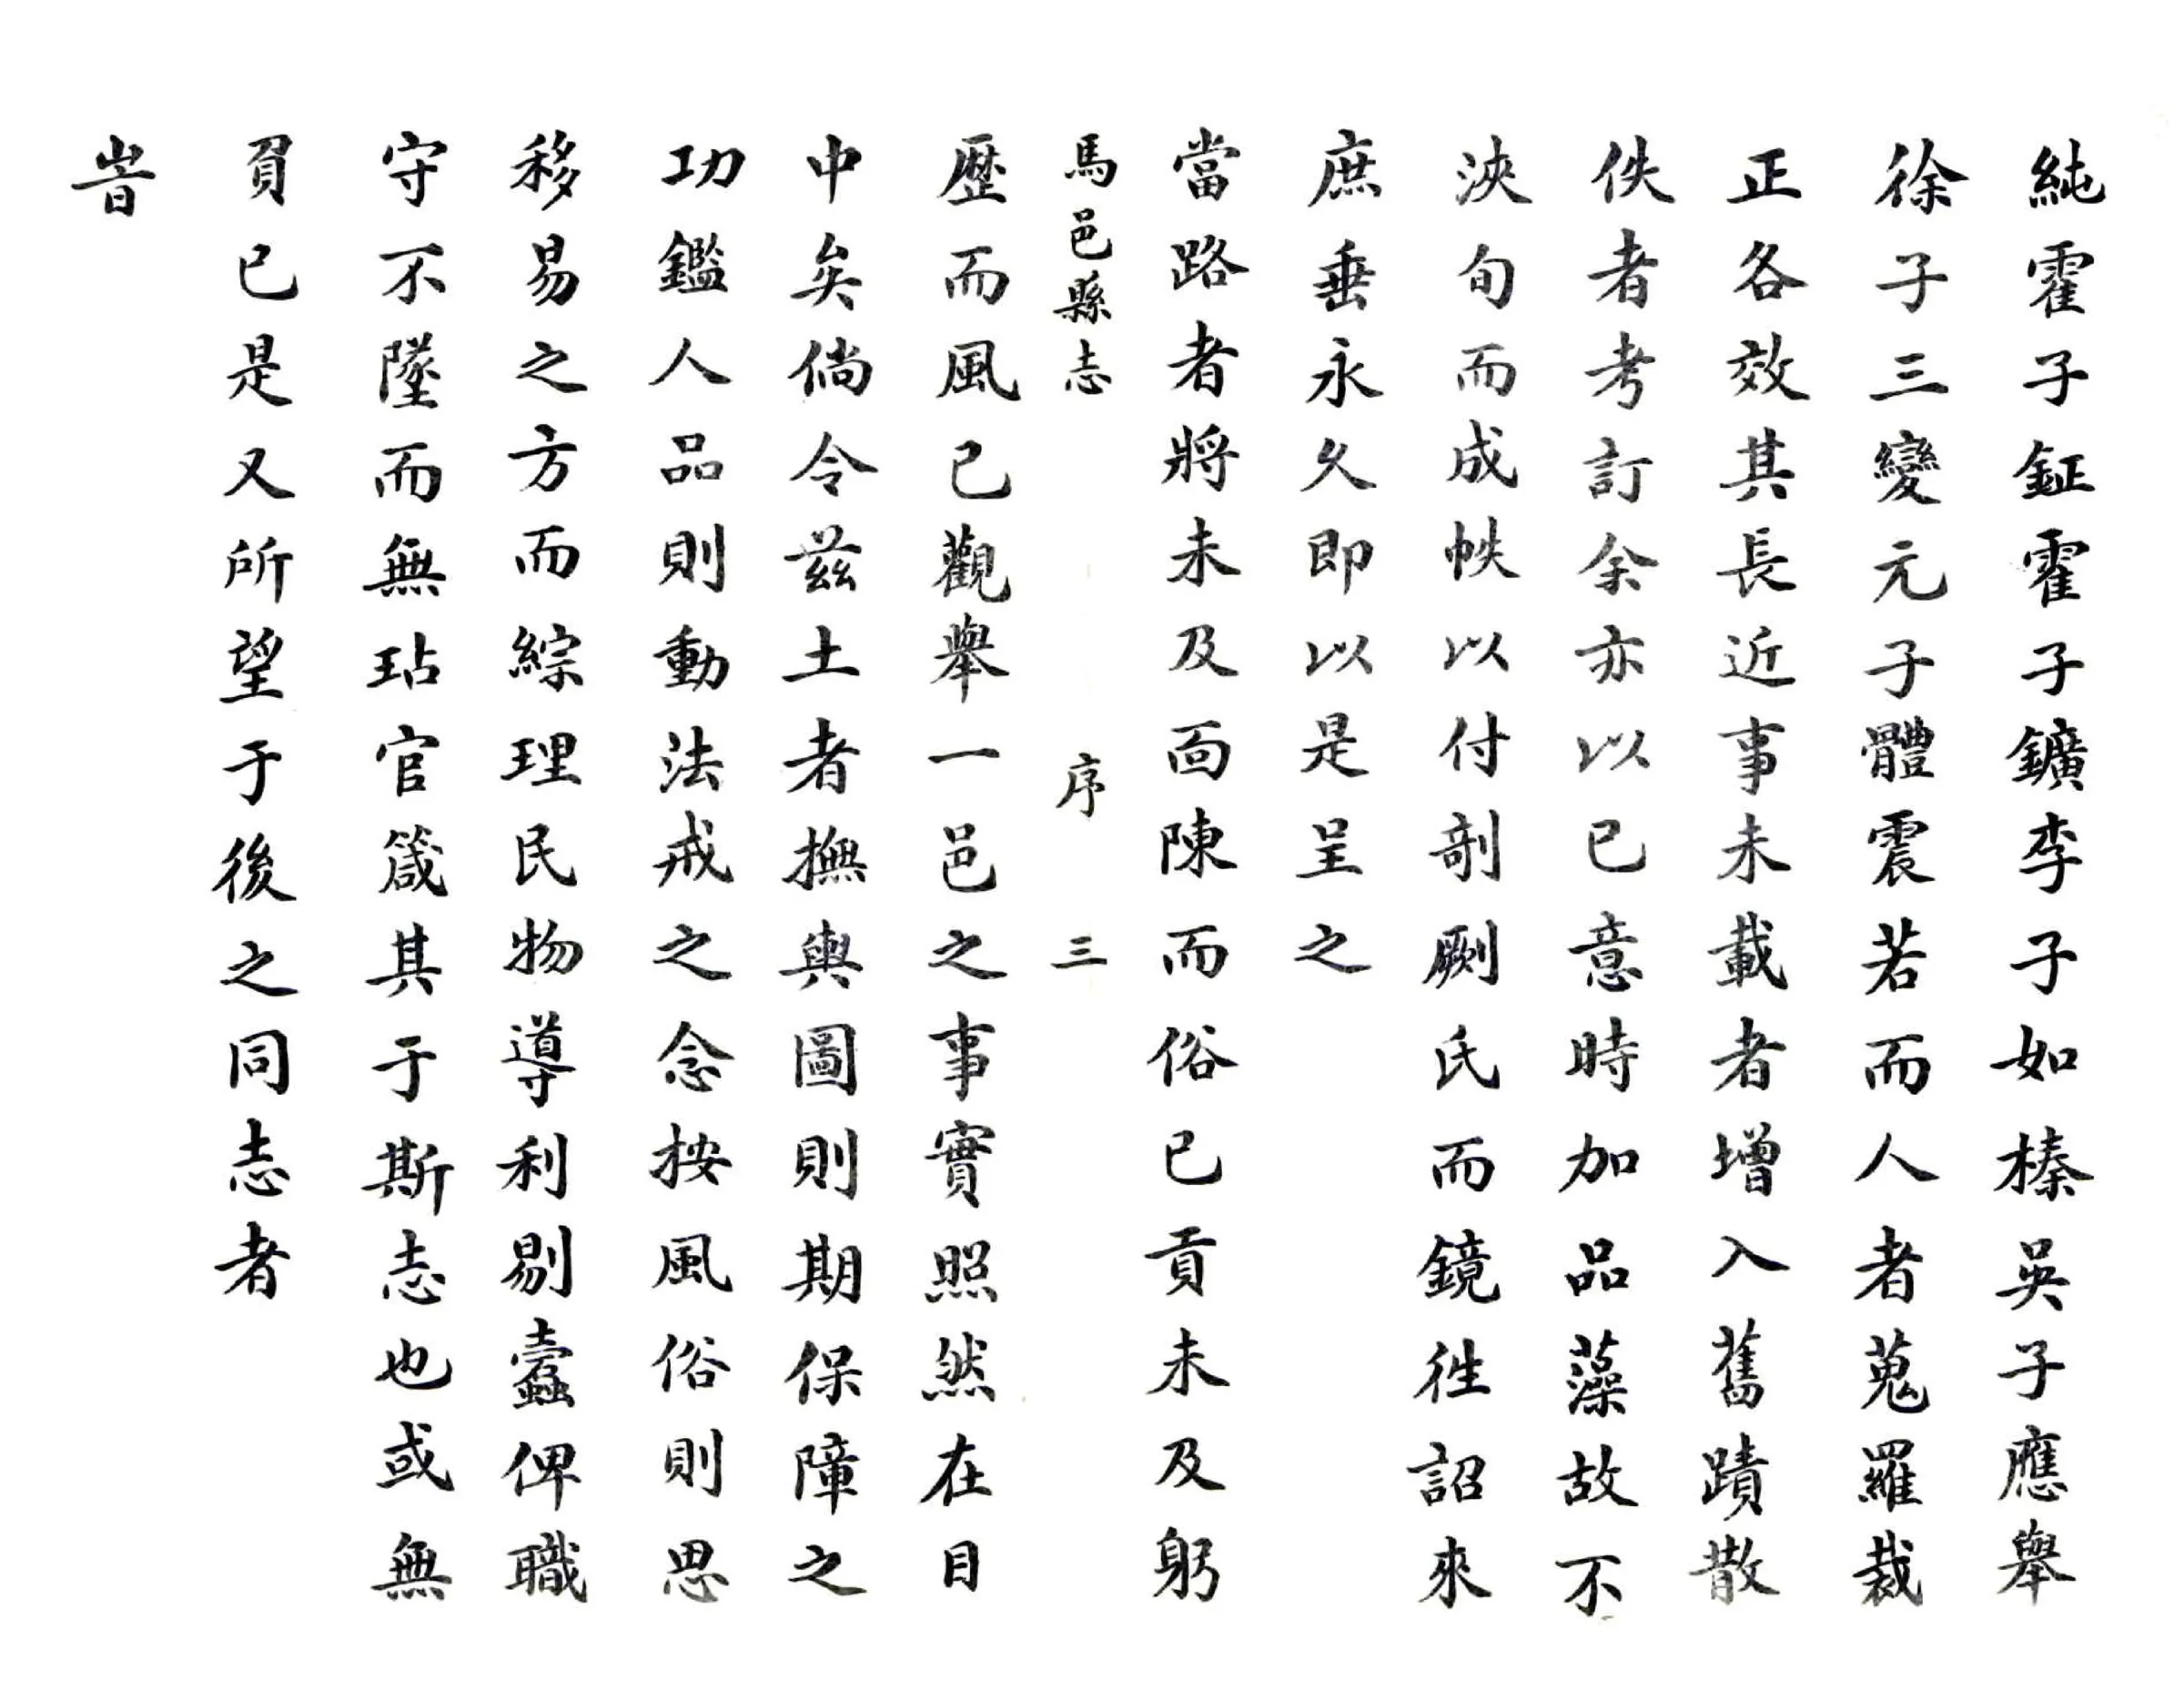 純霍子鉦霍子鑛李子如榛吳子應舉
徐子三變元子體震若而人者蒐羅裁
正各效其長近事未載者增入舊蹟散
佚者考訂余亦以已意時加品藻故不
浹旬而成帙以付剞劂氏而鏡徃詔來
庶垂永久即以是呈之
當路者將未及面陳而俗已貢未及躬
馬邑縣志 序 三
歷而風已觀舉一邑之事實照然在目
中矣倘令茲土者撫輿圖則期保障之
功鑑人品則動法戒之念按風俗則思
移易之方而綜理民物導利剔蠹俾職
守不墜而無玷官箴其于斯志也或無
負已是又所望于後之同志者
旹